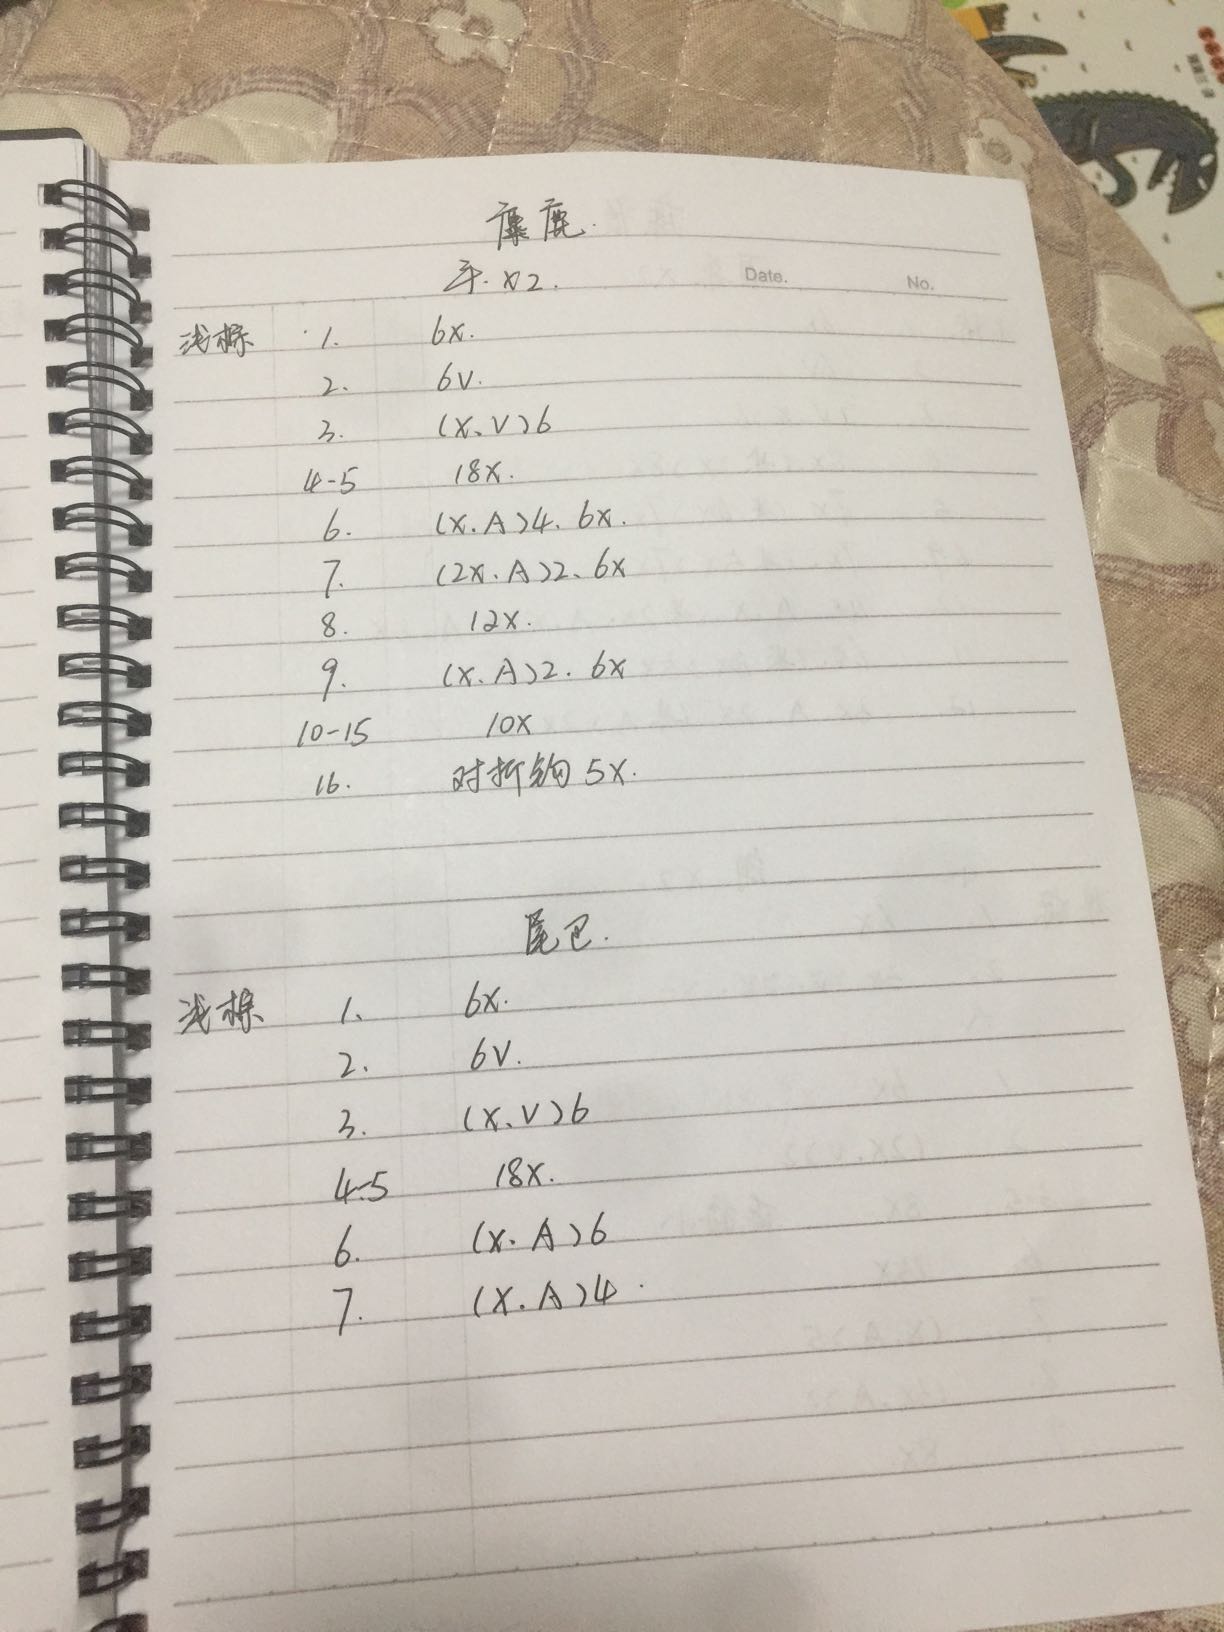 麋鹿.
手.x2.
Date. No.
浅棕 1. 6x.
2. 6V.
3. (x、V)6
4-5 18x.
6. (x.A)4. 6x.
7. (2x.A)2、6x
8. 12x.
9. (x.A)2. 6x
10-15 10x
16. 对折钩5x.
尾巴.
浅棕 1、 6x.
2. 6V.
3. (x、V)6
4-5 18x.
6. (x.A)6
7. (x.A)4.